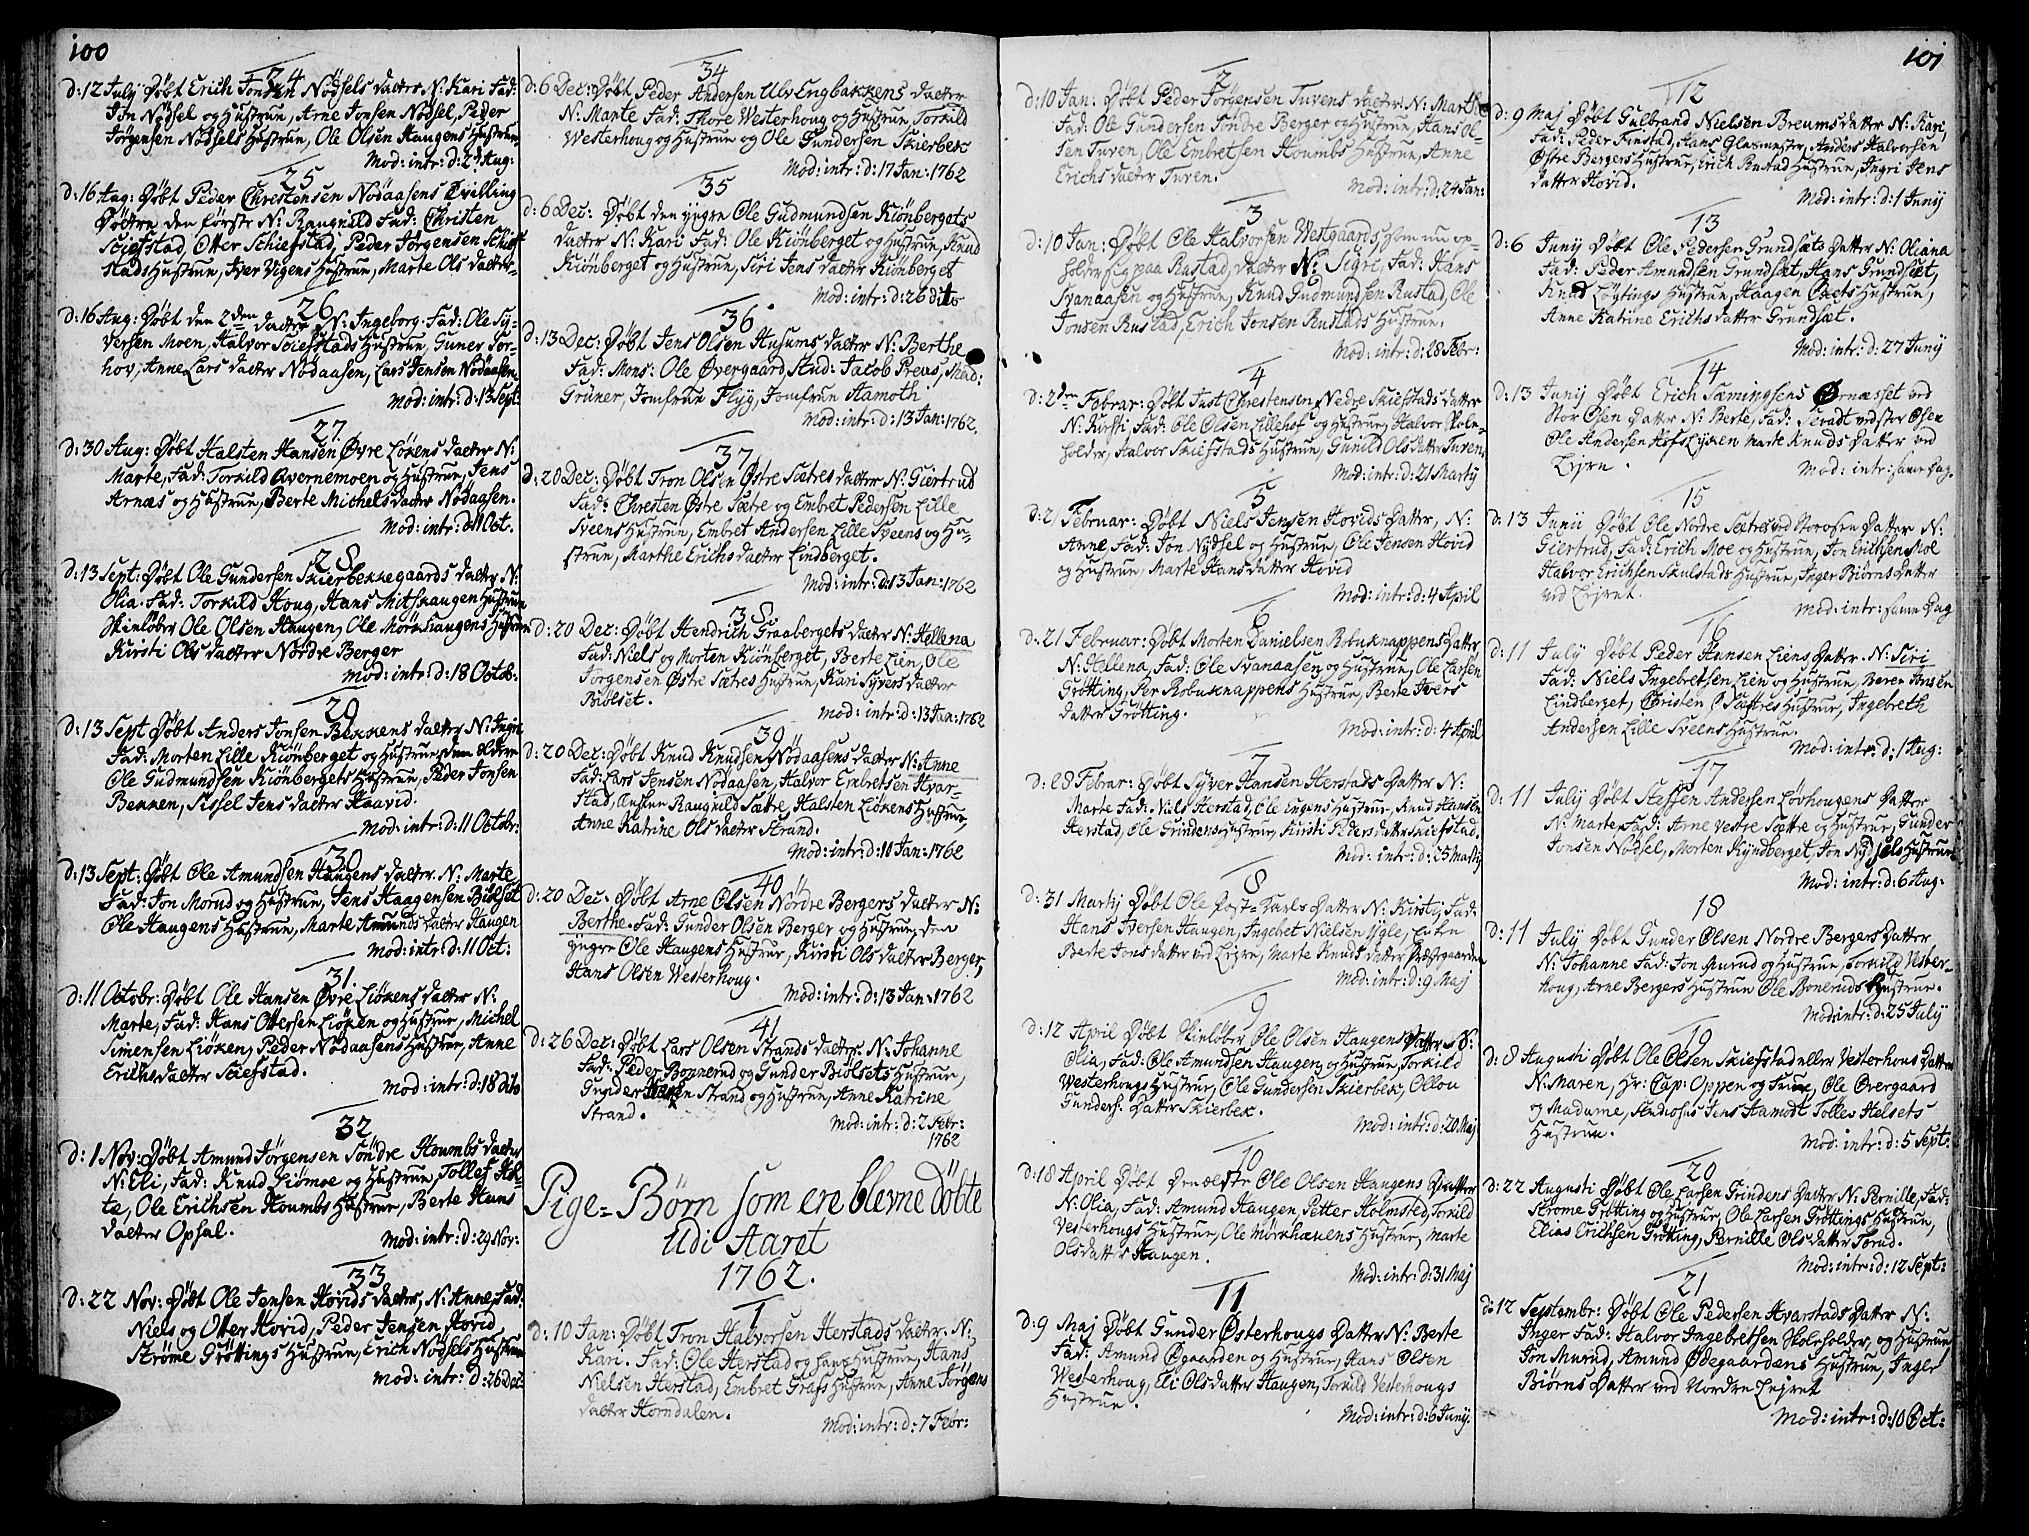 100
24
d: 12 July Døbt Erich Jonsen Nødsels datter N: Kari Fad:
Jon Nødsel og Hustrue, Arne Jonsen Nødsel, Peder
Jørgensen Nødsels Hustrue, Ole Olsen Haugens Hustrue
Mod: intr: d: 2d Aug:
25
d: 16 Aug: Døbt Peder Chrestensen Nødaasens Tvilling
Døttre den første N: Raugnild Fad: Christen
Sciefstad, Otter Schiefstad, Peder Jørgensen Schief
stads Hustrue, Iver Vigens Hustrue, Marte Ols datter
26
d: 16 Aug: Døbt den 2den datter N: Ingeborg. Fad: Ole Sy-
versen Moen, Halvor Sciefstads Hustrue, Guner Tor-
hov, Anne Lars datter Nødaasen, Lars Jensen Nødaasen.
Mod: intr: d: 13 Sept:
27.
d: 30 Aug: Døbt Halsten Hansen Øvre Løkens datter N:
Marte, Fad: Torkild Avernemoen og Hustrue, Jens
Arnæs og Hustrue, Berte Michels datter Nødaasen.
Mod: intr: d: 11 Oct.
28
d: 13 Sept: Døbt Ole Gundersen Skierbekkegaards datter N:
Olia. Fad: Torkild Houg, Hans Mitskaugen Hustrue
Skinløber Ole Olsen Haugen, Ole Mørkhaugens Hustrue
Kirsti Ols datter Nørdre Berger
Mod: intr: d: 18 Octob:
29
d: 13 Sept Døbt Anders Jonsen Bekkens datter N: Ingri
Fad: Morten Lille Kiønberget og Hustrue, den Eldere
Ole Gudmundsen Kiønbergets Hustrue, Peder Jonsen
Bekken, Sissel Jens datter Haavid.
Mod: intr: d: 11 Octob:
30
d: 13 Sept: Døbt Ole Amundsen Haugens datter N: Marte
Fad: Jon Morud og Hustrue, Jens Haagensen Biølset
Ole Haugens Hustrue, Marte Amunds datter Haugen
Mod: intr: d: 11 Oct:
31.
d: 11 Octobr: Døbt Ole Hansen Øvre Liøkens datter N:
Marte, Fad: Hans Ottersen Liøken og Hustrue, Michel
Simensen Liøken, Peder Nødaasens Hustrue, Anne
Erichs datter Sciefstad.
Mod: intr: d: 18 dito
32
d: 1 Nov: Døbt Amund Jørgensen Søndre Houmbs datter
N: Eli, Fad: Knud Diømoe og Hustrue, Tollef Hol-
te, Ole Erichsen Houmbs Hustrue, Berte Hans
datter Opsal.
Mod: intr: d: 29 Nov:
33
d: 22 Nov: Døbt Ole Jensen Hovids datter, N: Anne, Fad:
Niels og Otter Hovid, Peder Jensen Hovid,
Strøme Grøttings Hustrue, Erich Nødsels Hustrue
Mod: intr: d: 26 Dec:
34
d: 6 Dec: Døbt Peder Andersen Ulv Engbakkens datter
N: Marte Fad: Thore Westerhoug og Hustrue Torkild
Westerhoug og Hustrue og Ole Gundersen Skierbek
Mod: intr: d: 17 Jan: 1762
35
d: 6 Dec: Døbt den yngre Ole Gudmundsen Kiønbergets
datter N: Kari Fad: Ole Kiønberget og Hustrue, Knud
Kiønberget og Hustrue, Siri Jens datter Kiønberget
Mod: intr: d: 26 dito
36
d: 13 Dec: Døbt Jens Olsen Husums datter N: Berthe
Fad: Mons: Ole Øvergaard, Stud: Jacob Preus, Mad:
Grüner, Jomfrue Flyg, Jomfrue Hamoth
Mod: intr: d: 13 Jan: 1762.
37
d: 20 Dec: Døbt Tron Olsen Østre Sætres datter N: Giertrud
Fad: Chresten Østre Sætre og Embret Pedersen Lille
Sveens Hustrue, Embret Andersen Lille Sveens og Hu-
strue, Marthe Erichs datter Lindberget.
Mod: intr: d: 13 Jan: 1762
38
d: 20 Dec: Døbt Hendrich Graabergets datter N: Hellena
Fad: Niels og Morten Kiønberget, Berte Lien, Ole
Jørgensen Østre Sætres Hustrue, Kari Syvers datter
Biølset.
Mod: intr: d: 13 Jan: 1762
39
d: 20 Dec: Døbt Knud Knudsen Nødaasens datter N: Anne
Fad: Lars Jensen Nødaasen, Halvor Embretsen Hvar-
stad, Raugnild Sætre, Halsten Liøkens Hustrue,
Anne Katrine Ols datter Strand.
Mod: intr: d: 10 Jan: 1762
40
d: 20 Dec: Døbt Arne Olsen Nørdre Bergers datter N:
Berthe. Fad: Gunder Olsen Berger og Hustrue, den
yngre Ole Haugens Hustrue, Kirsti Ols datter Berger,
Hans Olsen Westerhoug.
Mod: intr: d: 13 Jan: 1762
41
d: 26 Dec: Døbt Lars Olsen Strands datter N: Johanne
Fad: Peder Bonnerud og Gunder Biølsets Hustrue,
Gunder Strand og Hustrue, Anne Katrine
Strand.
Mod: intr: d: 2 Febr:
1762
Pige-Børn som ere blevne døbte
Udi Aaret
1762.
1
d: 10 Jan: Døbt Tron Halvorsen Herstads datter. N:
Kari. Fad: Ole Herstad og hans Hustrue, Hans
Nielsen Herstad, Embret Grafs Hustrue, Anne Jørgens
datter Horndalen.
Mod: intr: d: 7 Febr:
101
2
d: 10 Jan: Døbt Peder Jørgensen Tuvens datter N: Marthe
Fad: Ole Gundersen Søndre Berger og Hustrue, Hans Ol-
sen Tuven, Ole Embretsen Houmbs Hustrue, Anne
Erichs datter Tuven.
Mod: intr: d: 24 Jan:
3
d: 10 Jan: Døbt Ole Halvorsen Westgaards som nu op-
holder sig paa Rustad, datter N: Sigri, Fad: Hans
Svanaasen og Hustrue, Knud Gudmundsen Rustad, Ole
Jonsen Rustad, Erich Jonsen Rustads Hustrue.
Mod: intr: d: 28 Febr:
4
d: 2den Februar: Døbt Just Chrestensen Nedre Skiefstads datter
N: Kirsti, Fad: Ole Olsen Lillehof og Hustrue, Halvor Skole-
holder, Halvor Skiefstads Hustrue, Gunild Ols datter Tuven.
Mod: intr: d: 21 Martij
5
d: 21 Februar: Døbt Niels Jensen Hovids Datter, N:
Anne, Fad: Jon Nydsel og Hustrue, Ole Jensen Hovid
og Hustrue, Marte Hans datter Hovid
Mod: intr: d: 4 April
6
d: 21 Februar: Døbt Morten Danielsen Robuknappens Datter,
N: Hellena, Fad: Ole Svanaasen og Hustrue, Ole Larsen
Grøtting, Per Robuknappens Hustrue, Berte Ivers
datter Grøtting.
Mod: intr: d: 4 April
7
d: 28 Febar: Døbt Syver Hansen Herstads Datter N:
Marte Fad: Niels Herstad, Ole Engens Hustrue, Knud Hansen
Herstad, Ole Grindens Hustrue, Kirsti Peders datter Skiefstad.
Mod: intr: d: 25 Martij
8
d: 31 Martij Døbt Ole Post-Karls Datter N: Kirsti, Fad:
Hans Iversen Haugen, Ingebret Nielsen Ygle,
Berte Jons datter ved Lejre, Marte Knuds datter Præstgaarden
Mod: intr: d: 9 Maj
9
d: 12 April Døbt Skinløber Ole Olsen Haugens Datter N:
Olia, Fad: Ole Amundsen Haugen og Hustrue, Torkild
Westerhougs Hustrue, Ole Gundersen Skierbek, Ollou
Gunders: Datter Skierbek.
Mod: intr: d: 20 Maj
10
d: 18 April Døbt Den ælste Ole Olsen Haugens Datter
N: Olia, Fad: Amund Haugen, Petter Holmsted, Torkild
Vesterhougs Hustrue, Ole Mørkhauens Hustrue, Marte
Olsdatter Haugen.
Mod: intr: d: 31 Maj
11
d: 9 Maj Døbt Gunder Østerhougs Datter N: Berte
Fad: Amund Øgaarden og Hustrue, Hans Olsen
Westerhoug, Eli Olsdatter Haugen, Torkild Vesterhougs
Hustrue.
Mod: intr: d: 6 Junij:
12
d: 9 Maj Døbt Gulbrand Nielsen Breums datter N: Kari,
Fad: Peder Finstad, Hans Glasmester, Anders Halvorsen
Østre Bergers Hustrue, Erich Rustad Hustrue, Ingri Jens
datter Hovid.
Mod: intr: d: 1 Junij
13
d: 6 Junij Døbt Ole Pedersen Grundsæts Datter N: Oliana
Fad: Peder Amundsen Grundsæt, Hans Grundsæt,
Knud Løgtings Hustrue, Haagen Øxets Hustrue,
Anne Katrine Erichs datter Grundsæt.
Mod: intr: d: 27 Junij
14
d: 13 Junij Døbt Erich Sæmingsens Ørnæsset ved
Stor Øsen Datter N: Berte, Fad: Servdt ved stor Øsen
Ole Andersen Hofs Lyken Marte Knuds Datter ved
Lejre.
Mod: intr: samme Dag.
15
d: 13 Junii Døbt Ole Nordre Sætre ved Storosen Datter N:
Giertrud, Fad: Erich Moe og Hustrue, Jon Erichsen Moe
Halvor Erichsen Skulstads Hustrue, Inger Biørns Datter
ved Lejret.
Mod: intr: samme Dag
16
d: 11 July Døbt Peder Hansen Liens Datter N: Siri
Fad: Niels Ingebretsen Lien og Hustrue, Beren Jensen
Lindberget, Christen Ø Sættres Hustrue, Ingebreth
Andersen Lille Sveens Hustrue.
Mod: intr: d: 1 Aug:
17
d: 11 July Døbt Steffen Andersen Løvhougens Datter
N: Marte Fad: Arne Vestre Sættre og Hustrue, Gunder
Jonsen Nødsel, Morten Kyndberget, Jon Nydsels Hustrue
Mod: intr: d: 6 Aug:
18
d: 11 July Døbt Gunder Olsen Nordre Bergers Datter
N: Johanne Fad: Jon Murud og Hustrue, Torkild Vester-
houg, Arne Bergers Hustrue Ole Boneruds Hustrue.
Mod: intr: d: 25 July
19
d: 8 Augusti Døbt Ole Olsen Skiefstad eller Vesterhous Datter
N: Maren, Hr: Cap: Oppen og Frue, Ole Overgaard
og Madame, Studiosus Jens Hamodt Tolles Helsets
Hustrue.
Mod: intr: d: 5 Sept:
20
d: 22 Augusti Døbt Ole Larsen Grindens Datter N: Pernille, Fad:
Strøme Grøtting og Hustrue, Ole Larsen Grøttings Hustrue,
Elias Erichsen Grøtting, Pernille Ols datter Torud.
Mod: intr: d: 12 Sept:
21
d: 12 Septembr: Døbt Ole Pedersen Hvarstads Datter N:
Inger Fad: Halvor Ingebretsen Skoleholder, og Hustrue
Jon Murud, Amund Ødegaardens Hustrue, Inger
Biørns Datter ved Nordre Lejret
Mod: intr: d: 10 Oct: